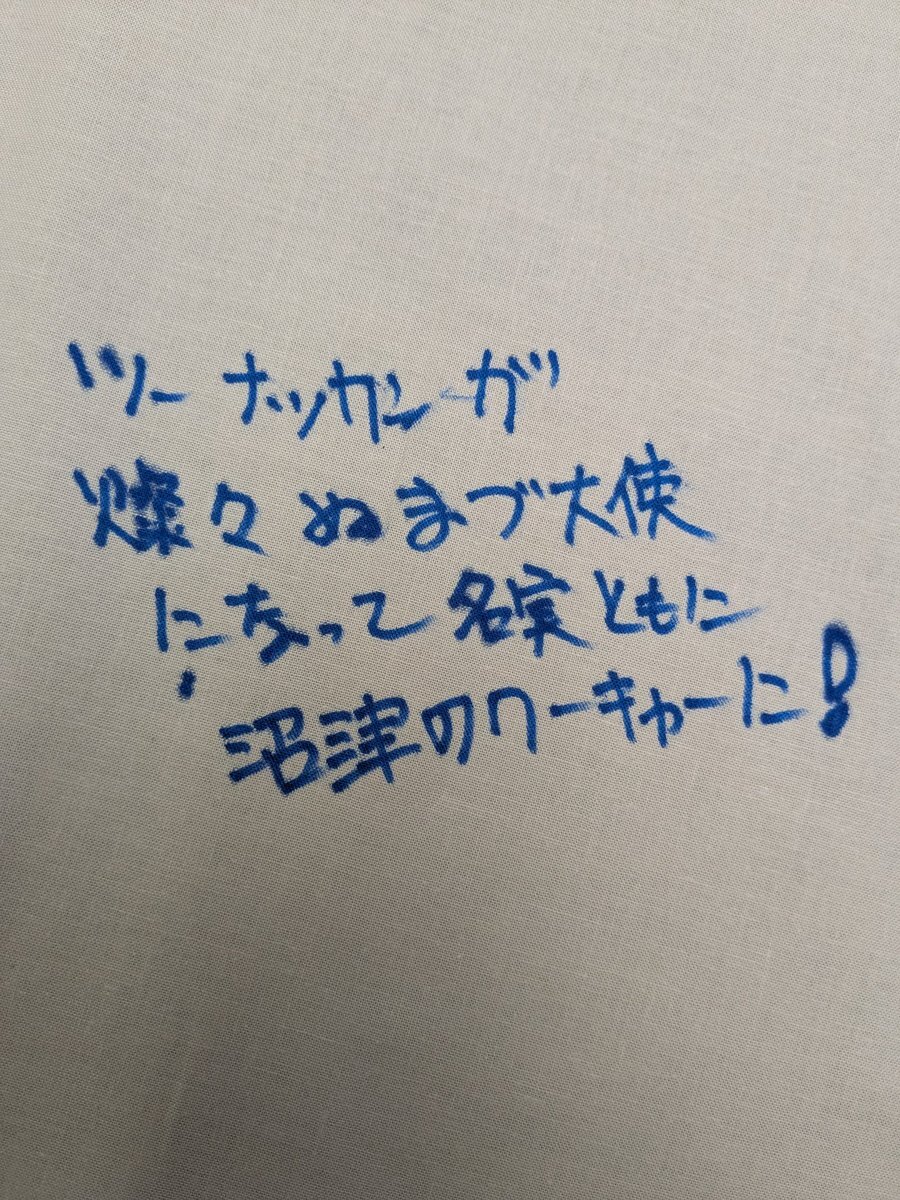 ツーナッカンが
燦々ぬまづ大使
になって名実ともに
沼津のワーキャーに!